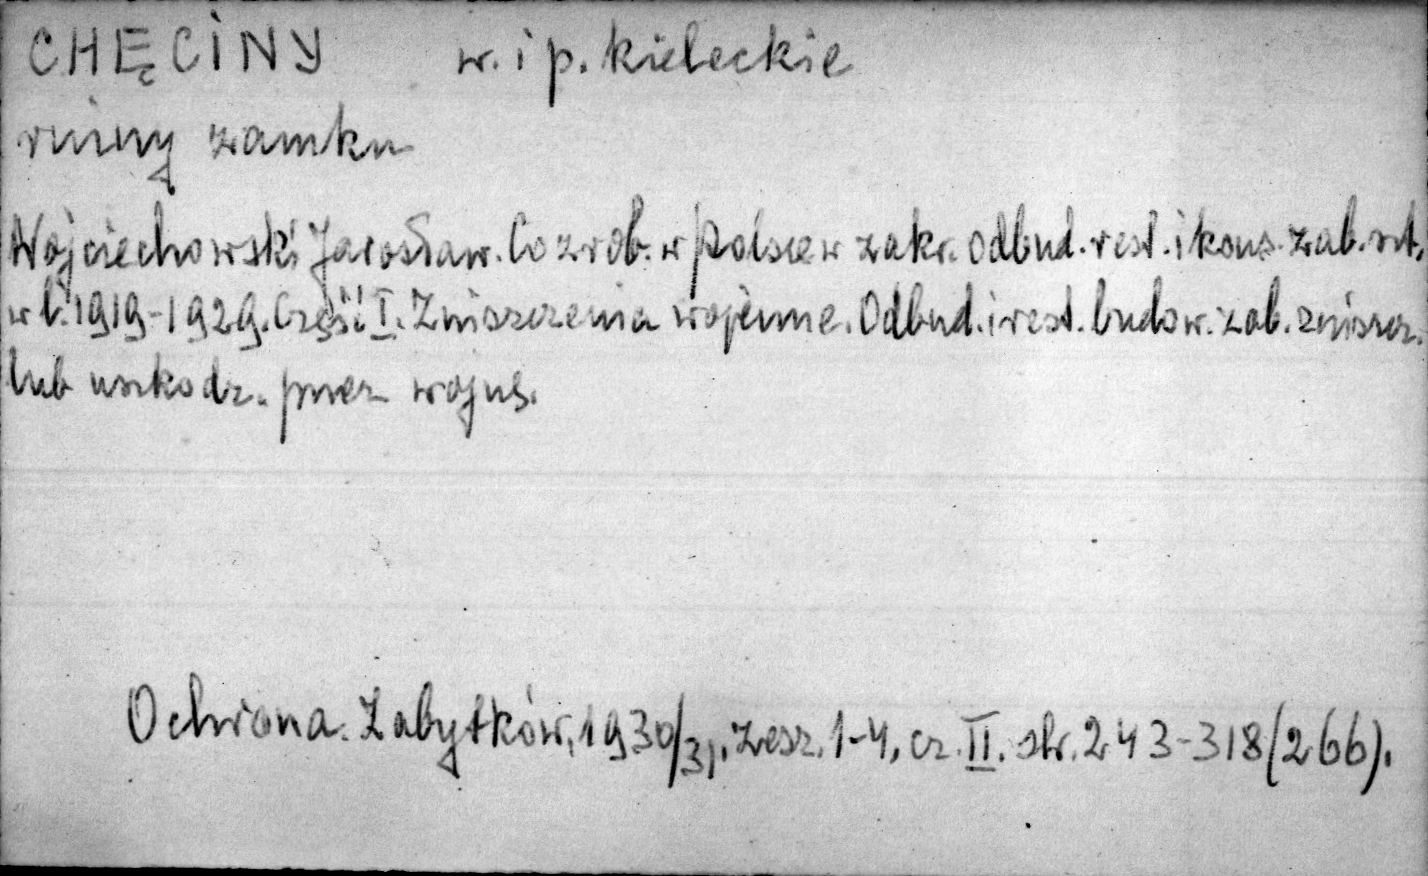 CHĘCINY w. i p. kieleckie
ruiny zamku
Wojciechowski Jarosław. Co zrob. w Polsce w zakr. odbud. rest. i kons. zab. szt.
w l. 1919-1929. Część I. Zniszczenia wojenne. Odbud. i rest. budow. zab. zniszcz.
lub uszkodz. przez wojnę.
Ochrona Zabytków, 1930/31, zesz. 1-4, cz. II. str. 243-318 (266).